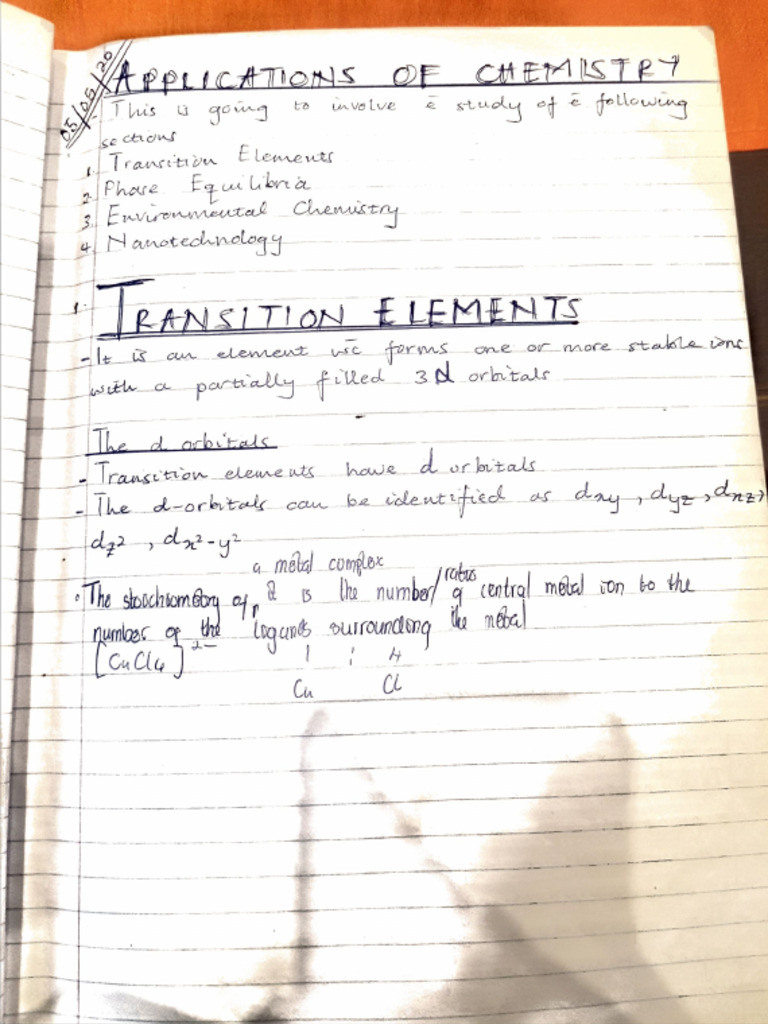 05/05/20
APPLICATIONS OF CHEMISTRY
This is going to involve ē study of ē following
sections
1. Transition Elements
2. Phase Equilibria
3. Environmental Chemistry
4. Nanotechnology
1. TRANSITION ELEMENTS
- It is an element wc̄ forms one or more stable ions
with a partially filled 3d orbitals
The d orbitals
- Transition elements have d orbitals
- The d-orbitals can be identified as dxy, dyz, dxz,
dz², dx²-y²
a metal complex
• The stoichiometry of it is the number/ratios of central metal ion to the
number of the ligands surrounding the metal
[CuCl4]²⁻ 1 : 4
Cu Cl